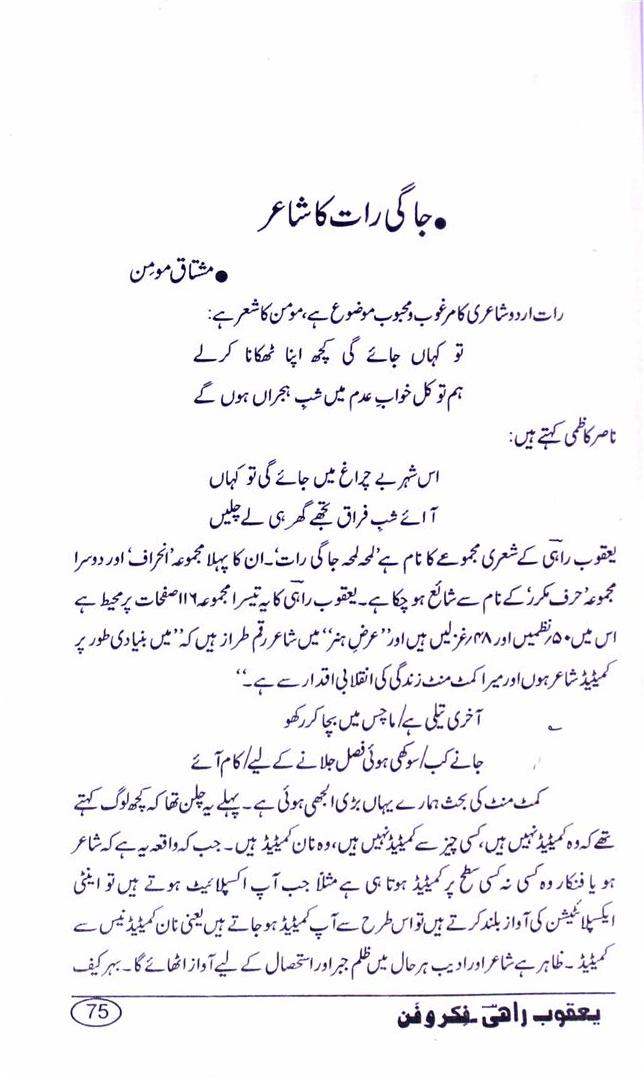 • جاگی رات کا شاعر
• مشتاق مومن
رات اردو شاعری کا مرغوب و محبوب موضوع ہے، مومن کا شعر ہے:
تو کہاں جائے گی کچھ اپنا ٹھکانا کرلے
ہم تو کل خوابِ عدم میں شبِ ہجراں ہوں گے
ناصر کاظمی کہتے ہیں:
اس شہرِ بے چراغ میں جائے گی تو کہاں
آ اے شبِ فراق تجھے گھر ہی لے چلیں
یعقوب راہیؔ کے شعری مجموعے کا نام ہے ’لمحہ لمحہ جاگی رات‘۔ ان کا پہلا مجموعہ ’انحراف‘ اور دوسرا
مجموعہ ’حرفِ مکرر‘ کے نام سے شائع ہو چکا ہے۔ یعقوب راہیؔ کا یہ تیسرا مجموعہ ۱۱۶ صفحات پر محیط ہے
اس میں ۵۰؍ نظمیں اور ۴۸؍ غزلیں ہیں اور ’’عرضِ ہنر‘‘ میں شاعر رقم طراز ہیں کہ ’’میں بنیادی طور پر
کمیٹیڈ شاعر ہوں اور میرا کمٹ منٹ زندگی کی انقلابی اقدار سے ہے۔‘‘
آخری تیلی ہے/ ماچس میں بچا کر رکھو
جانے کب/ سوکھی ہوئی فصل جلانے کے لیے/ کام آئے
کمٹ منٹ کی بحث ہمارے یہاں بڑی الجھی ہوئی ہے۔ پہلے یہ چلن تھا کہ کچھ لوگ کہتے
تھے کہ وہ کمیٹیڈ نہیں ہیں، کسی چیز سے کمیٹیڈ نہیں ہیں، وہ نان کمیٹیڈ ہیں۔ جب کہ واقعہ یہ ہے کہ شاعر
ہو یا فنکار وہ کسی نہ کسی سطح پر کمیٹیڈ ہوتا ہی ہے مثلاً جب آپ اکسپلائیٹ ہوتے ہیں تو اینٹی
ایکسپلائٹیشن کی آواز بلند کرتے ہیں تو اس طرح سے آپ کمیٹیڈ ہو جاتے ہیں یعنی نان کمیٹیڈنیس سے
کمیٹیڈ۔ ظاہر ہے شاعر اور ادیب ہر حال میں ظلم جبر اور استحصال کے لیے آواز اٹھائے گا۔ بہر کیف
یعقوب راھیؔ ۔ فِکر و فَن
75